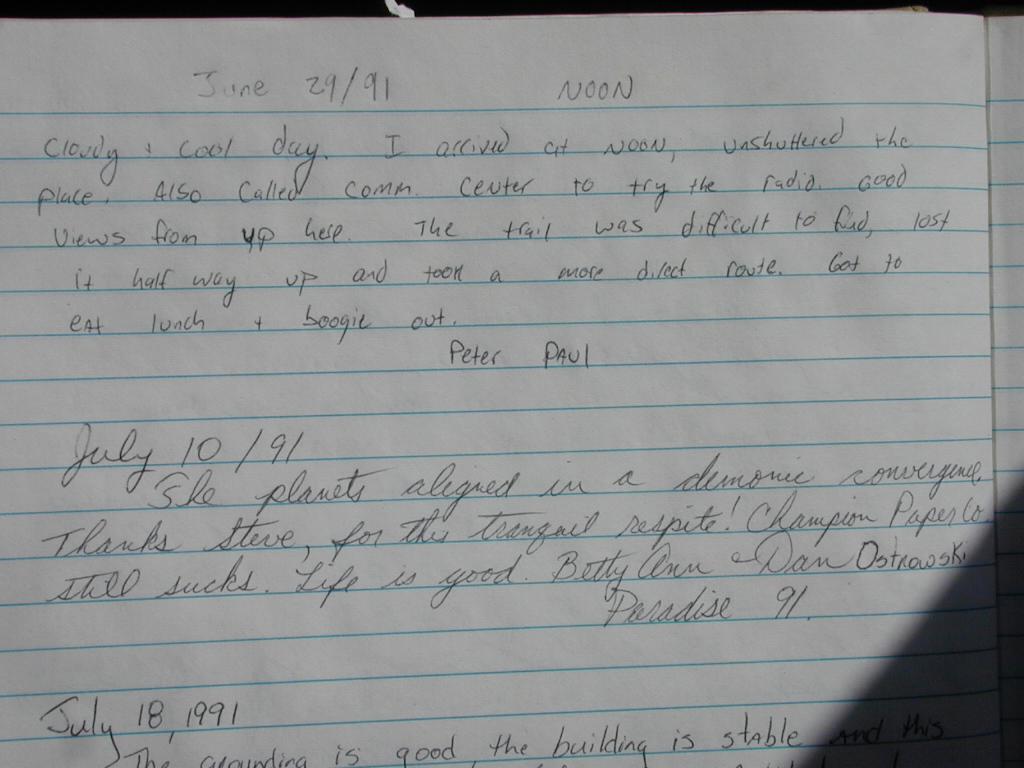 June 29/91 NOON
Cloudy + cool day. I arrived at NOON, unshuttered the
place. Also Called Comm. Center to try the radio. Good
views from up here. The trail was difficult to find, lost
it half way up and took a more direct route. Got to
eat lunch + boogie out.
Peter PAUl
July 10/91
The planets aligned in a demonic convergence.
Thanks Steve, for this tranquil respite! Champion Paper Co
still sucks. Life is good. Betty Ann & Dan Ostrowski
Paradise 91.
July 18, 1991
The grounding is good, the building is stable and this